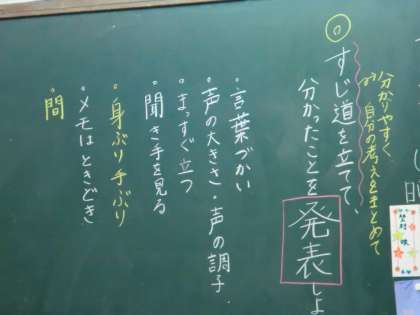 分かりやすく
自分の考えをまとめて
◎すじ道を立てて、
分かったことを発表しよ
・言葉づかい
・声の大きさ・声の調子
・まっすぐ立つ
・聞き手を見る
・身ぶり手ぶり
・メモはときどき
・間